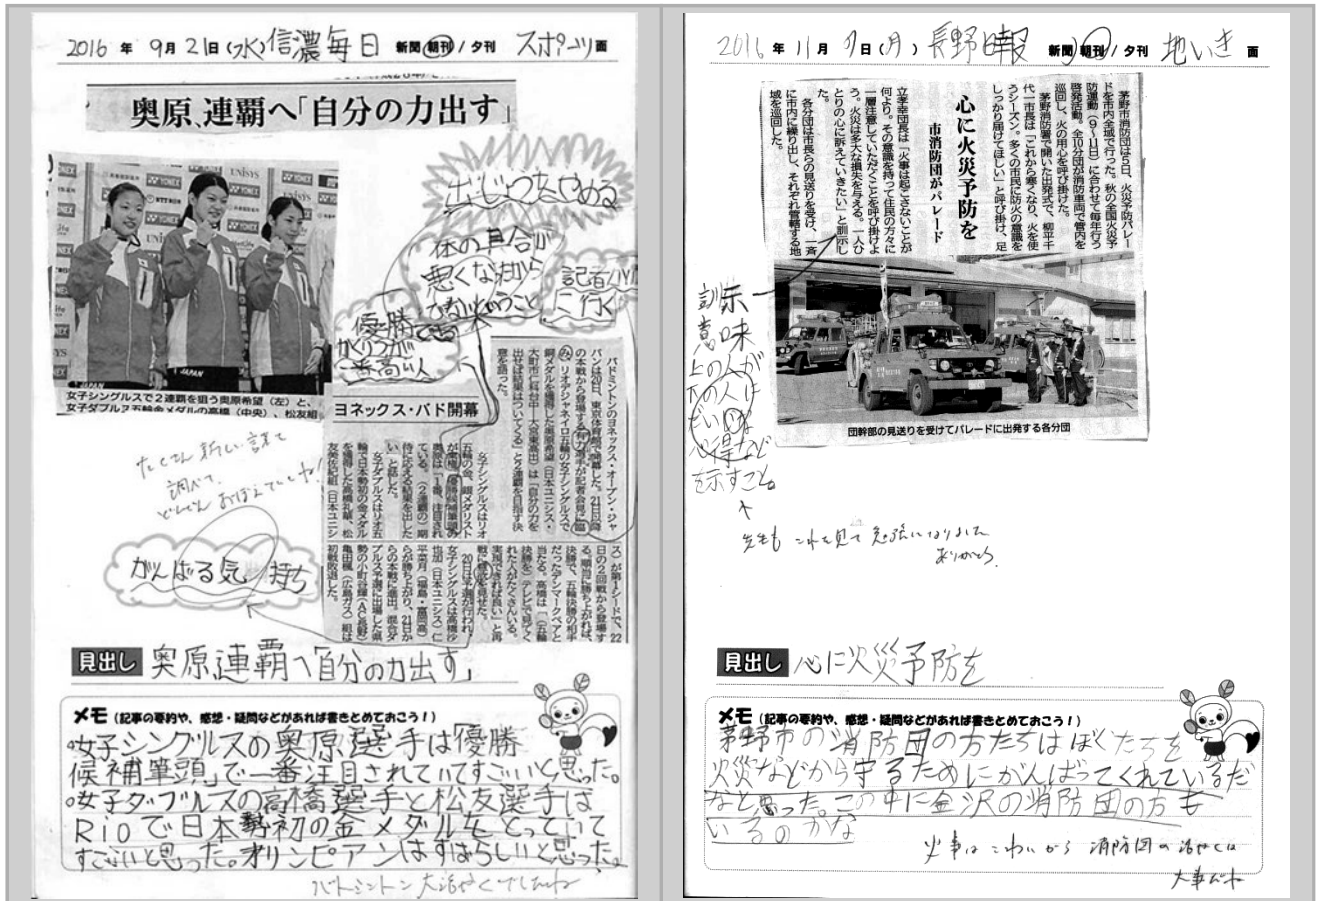 2016 年 9月 21日(水) 信濃毎日 新聞 朝刊 / 夕刊 スポーツ 面
奥原、連覇へ「自分の力出す」
出じょうをやめる
体の具合が
悪くなったから
記者
に行く
優勝
かくりつが
一番高い人
女子シングルスで2連覇を狙う奥原希望(左)と、
女子ダブルス五輪金メダルの高橋(中央)、松友組
ヨネックス・バド開幕
バドミントンのヨネックス・オープン・ジャ
パンは20日、東京体育館で開幕した。21日以降
の本戦から登場する有力選手が記者会見に臨
み、リオデジャネイロ五輪の女子シングルスで
銅メダルを獲得した奥原希望(日本ユニシス・
大町市仁科台中―大宮東高出)は「自分の力を
出せば結果はついてくる」と2連覇を目指す決
意を語った。
女子シングルスはリオ
五輪の金、銀メダリスト
が棄権。優勝候補筆頭の
奥原は「1番、注目され
ている。(2連覇の)期
待に応える結果を出した
い」と話した。
女子ダブルスはリオ五
輪で日本勢初の金メダル
を獲得した高橋礼華、松
友美佐紀組(日本ユニシ
ス)が第1シードで、22
日の2回戦から登場す
る。順当に勝ち上がれば、
決勝で、五輪決勝の相手
だったデンマークペアと
当たる。高橋は「(五輪
決勝を)テレビで見てく
れた人がたくさんいる。
実現できれば良い」と再
戦に意欲を見せた。
20日は予選が行われ、
女子シングルスは高橋沙
也加(日本ユニシス)に
平菜月(福島・富岡高)
らが勝ち上がり、21日か
らの本戦に進出。混合ダ
ブルス予選に出場した県
勢の小町谷輝(AC長野)
亀田楓(広島ガス)組は
初戦敗退した。
たくさん 新しい言葉
調べて、
どんどん おぼえていてね!
がんばる気持ち
見出し 奥原、連覇へ「自分の力出す」
メモ(記事の要約や、感想・疑問などがあれば書きとめておこう!)
。女子シングルスの奥原選手は「優勝
候補筆頭」で一番注目されていてすごいと思った。
。女子ダブルスの高橋選手と松友選手は
Rioで日本勢初の金メダルをとっていて
すごいと思った。オリンピアンはすばらしいと思った。
バトミントン 大活やくでしたね
2016 年 11月 7日(月) 長野日報 新聞 朝刊 / 夕刊 地いき 面
茅野市消防団は5日、火災予防パレー
ドを市内全域で行った。秋の全国火災予
防運動(9〜11日)に合わせて毎年行う
啓発活動。全10分団が消防車両で管内を
巡回し、火の用心を呼び掛けた。
茅野消防署で開いた出発式で、柳平千
代一市長は「これから寒くなり、火を使
うシーズン。多くの市民に防火の意識を
しっかり届けてほしい」と呼び掛け、足
立孝幸団長は「火事は起こさないことが
何より。その意識を持って住民の方々に
一層注意していただくことを呼び掛けよ
う。火災は多大な損失を与える。一人ひ
とりの心に訴えていきたい」と訓示し
た。
各分団は市長らの見送りを受け、一斉
に市内に繰り出し、それぞれ管轄する地
域を巡回した。
心に火災予防を
市消防団がパレード
団幹部の見送りを受けてパレードに出発する各分団
訓示
意味
上の人が
下の人に
心得など
を示すこと。
先生も これを見て 勉強になりました
ありがとう。
見出し 心に火災予防を
メモ(記事の要約や、感想・疑問などがあれば書きとめておこう!)
茅野市の消防団の方たちはぼくたちを
火災などから守るためにがんばってくれているだ
なと思った。この中に金沢の消防団の方も
いるのかな
火事は こわいから 消防団の活やくは
大事だね